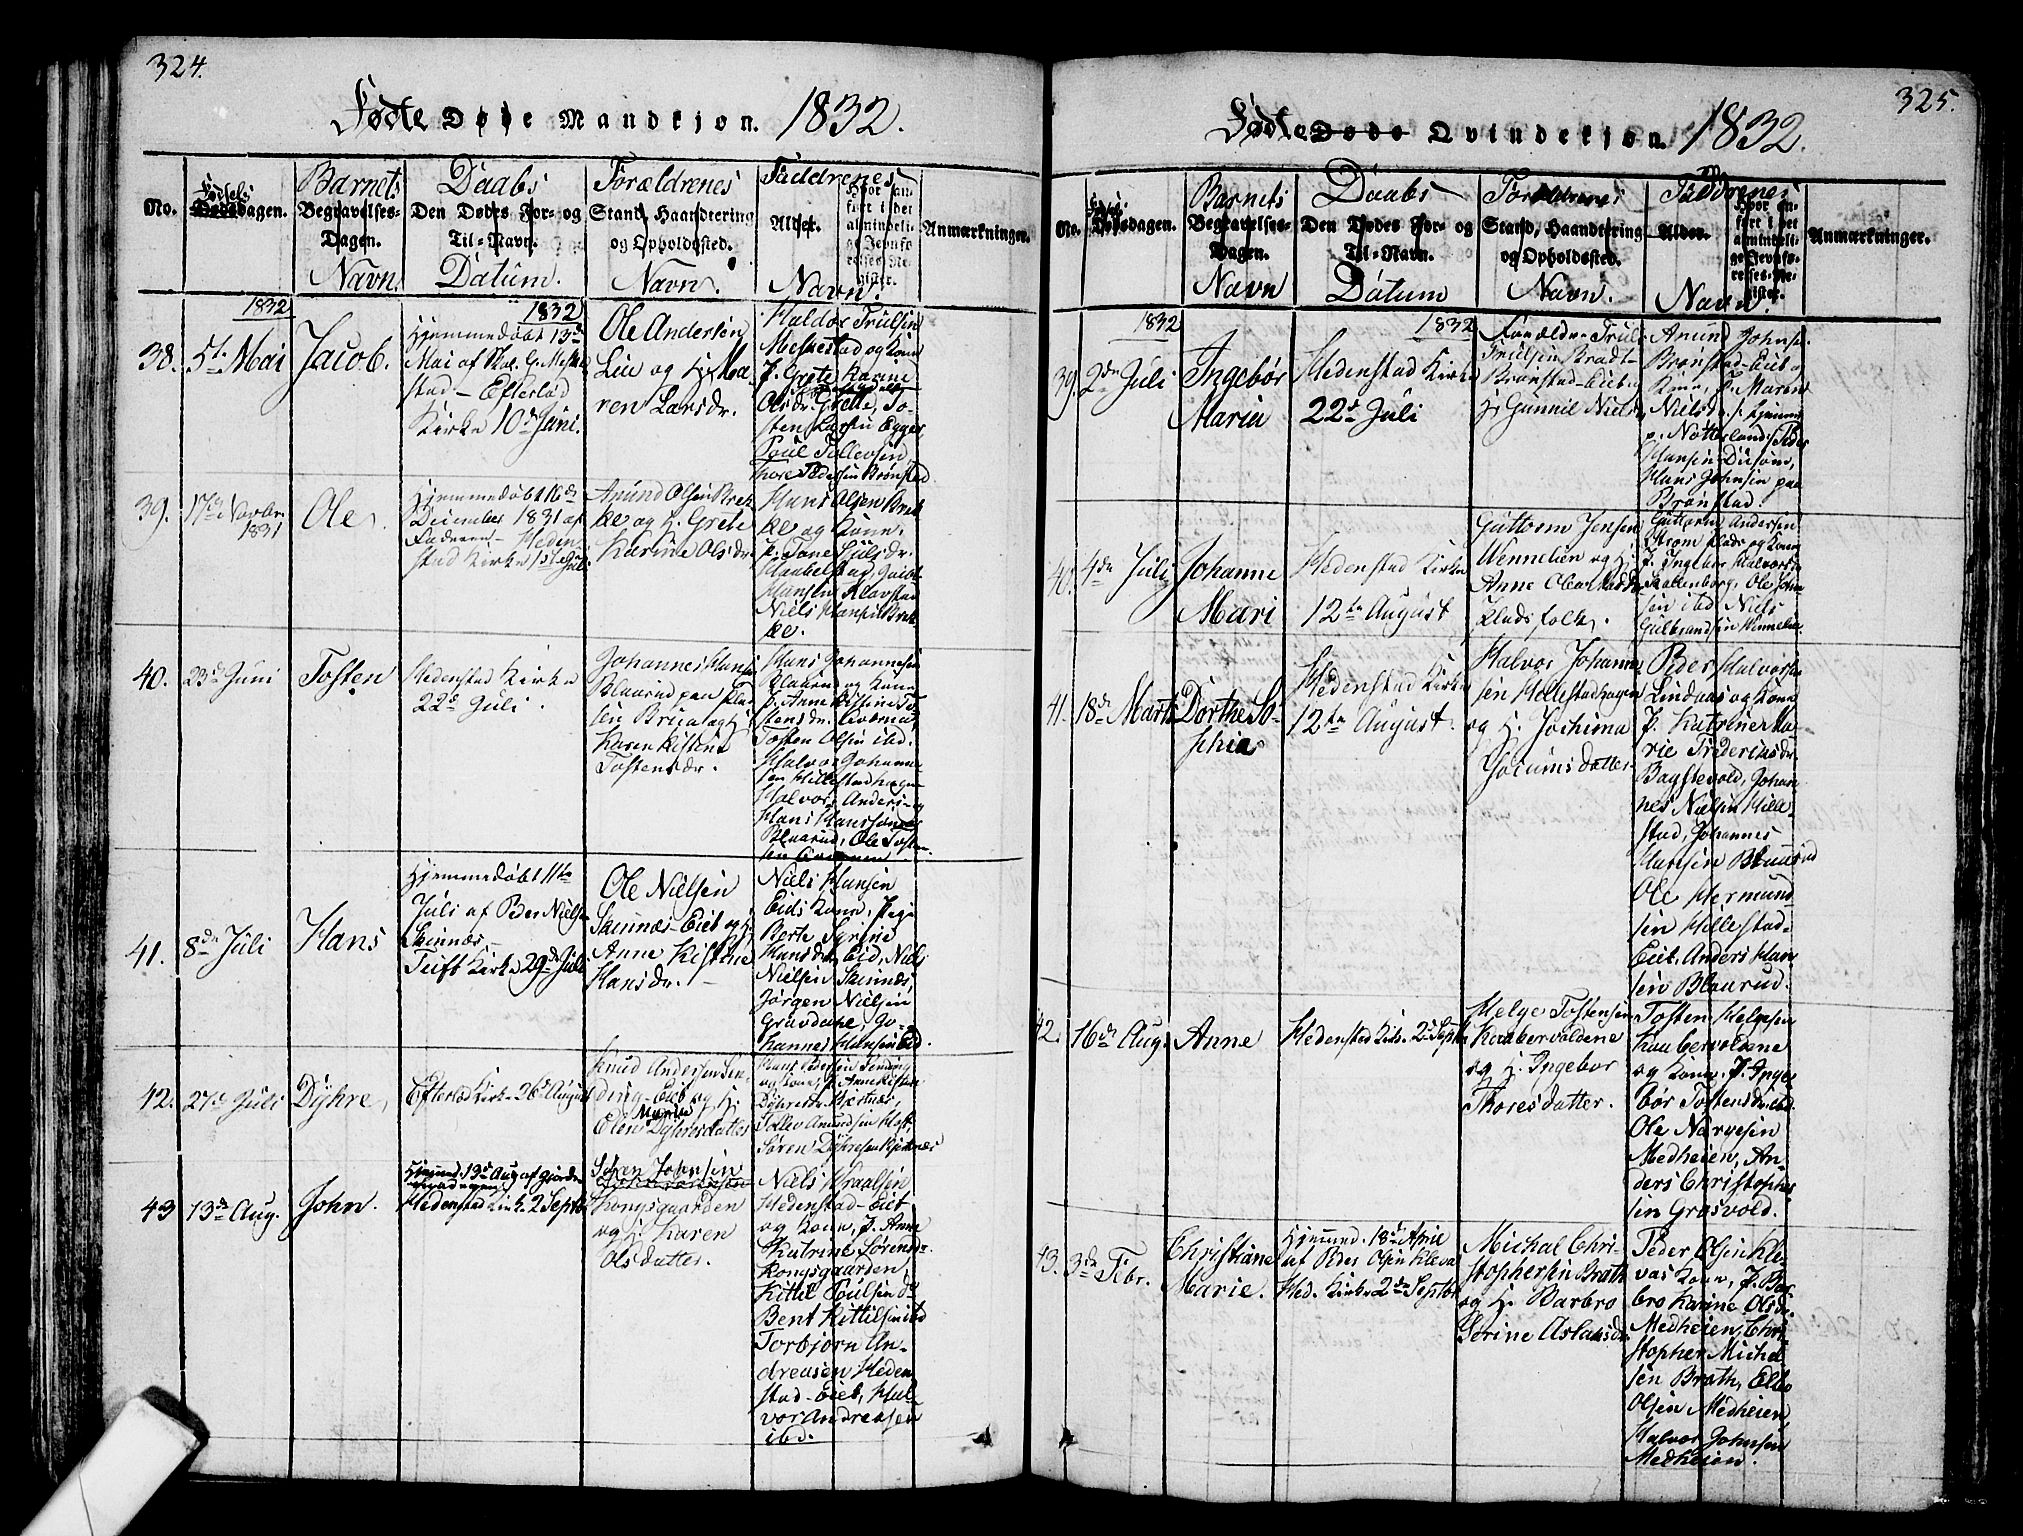 324.
Fødte Døde Mandkjøn. 1832.
No.
Fødsels Dødsdagen.
Barnets
Begravelses-
Dagen.
Navn
Daabs
Den Dødes For- og
Til-Navn.
Datum.
Forældrenes
Stand, Haandtering
og Opholdssted.
Navn.
Faddrenes
Alder.
Hvor an-
ført i det
almindeli-
ge Jevnfø-
relses-Re-
gister.
Navn.
Anmærkninger.
1832
38. 5te Mai
Jacob.
1832
Hjemmedøbt 13de
Mai af
stad - Efterløds
Kirke 10de Juni.
Ole Andersen
Lie og H. Ma
ren Larsdr.
Haldor Truelsen
Mehestad og Kone
P. Grete Karine
Olsdr. Grette, To-
sten Larsen Egger
Poul Tollevsen,
Thore Pedersen Brønstad
39. 17de Novbr.
1831
Ole.
Hjemmedøbt 16de
December 1831 af
Faderen - Heden
stad Kirke 1ste Juli
Amund Olsen Brek
ke og H. Grete
Karine Olsdr.
Hans Olsen Brek
ke og Kone.
P. Tone Juulsdr.
Haabelstad, Jacob
Hansen Klavstad
Niels Hansen Brek
ke.
40. 23de Juni
Tosten
Hedenstad Kirke
22de Juli.
Johannes Hansen
Blaarud paa
og H.
Karen Kistine
Tostensdr.
Hans Johannesen
Blaarud og Kone
P. Anne Kistine To
stensdr.
Tosten Olsen ibd.
Halvor Johanne
sen Hillestadhagen
Halvor Anders- og
Hans Hanssønner
Blaarud, Ole Tosten
sen
41. 8de Juli
Hans
Hjemmedøbt 11te
Juli af Peder Nielsen
Skinnæs -
Tuft Kirke 29de Juli
Ole Nielsen
Skinnæs-Eiet og H.
Anne Kistine
Hansdr. -
Niels Hansen
Eids Kone, Pige
Berte Syrine
Hansdr. Eid, Niels
Nielsen Skinnæs,
Jørgen Nielsen
Gravdahl, Jo-
hannes Hansen Eid.
42. 27de Juli
Dyhre,
Efterløds Kirke 26de August
Knud Andersen Sen
ding-Eiet og H.
Elen Marie Dyhresdatter
Hans Pedersen Sending
og Kone, P. Anne Kistine
Dyhresdr.
Tollev Amundsen
Søren Dyhresen
43 13de Aug.
John.
Hjemmed. 13de Aug. af
Hedenstad Kirke 2 Septbr
Søren Johnsen
Kongsgaarden
og H. Karen
Olsdatter.
Niels Wraalsen
Hedenstad-Eiet
og Kone, P. Anne
Katrine Sørensdr.
Kongsgaarden
Kittil Poulsen ds
Bent Kittilsen ibd
Torbjørn An-
dreasen Heden
stad-Eiet, Hal-
vor Andreasen
ibd.
325.
Fødte Døde Qvindekjøn. 1832.
No.
Fødsels Dødsdagen.
Barnets
Begravelses-
Dagen.
Navn
Daabs
Den Dødes For- og
Til-Navn.
Datum
Forældrenes
Stand, Haandtering
og Opholdssted.
Navn.
Faddrenes
Alder.
Hvor an-
ført i det
almindeli-
ge Jevnfø-
relses-Re-
gister.
Navn.
Anmærkninger.
1832
39. 2den Juli
Ingebor
Maria
1832
Hedenstad Kirke
22de Juli
Forældre Truls
Trulsen Bradt-
Brønstad-Eiet og
H. Gunnil Nielsdr.
Amund Johnsen
Brønstad-Eiet og
Kone, P. Maren
Nielsdr.
p. Nøtterland, Peder
Hansen
Hans Johnsen paa
Brønstad.
40. 4de Juli
Johanne
Mari
Hedenstad Kirke
12te August
Guttorm Jensen
Wennelien og H.
Anne Oleasdatter
Pladsfolk.
Guttorm Andersen
Strøm Plads og Kone
P. Ingebor Halvorsdr.
Skollenborg, Ole Johan
sen ibd. Niels
Gulbrandsen Wennelien
41. 18de Marts
Dorthe So-
phie
Hedenstad Kirke
12te August.
Halvor Johanne
sen Hillestadhagen
og H. Jochima
Jocumsdatter
Peder Halvorsen
Lindaas og Kone
P. Katrine Ma-
rie Frederiksdr.
Bagstevold, Johan
nes Nielsen Hille-
stad, Johannes
Hansen Blaarud
Ole Hermund-
sen Hillestad-
Eiet, Anders Han
sen Blaarud.
42. 16de Aug.
Anne
Hedenstad Kirke 2de Septbr
Helge Tostensen
Haabervoldene
og H. Ingebor
Thoresdatter.
Tosten Helgesen
Haabervoldene
og Kone. P. Inge
bor Tostensdr. ibd.
Ole Narvesen
Medheien, An-
ders Christophe
sen Grasvold.
43. 3de Febr.
Christiane
Marie.
Hjemmed. 18de April
af Peder Olsen Kleva
Hed. Kirke 2de Septbr
Michal Chri-
stophersen Brath
og H. Barbro
Sørine Aslaksdr.
Peder Olsen Kle
vas Kone, P. Bar
bro Karine Olsdr.
Medheien, Chri-
stopher Michel
sen Brath, Elev
Olsen Medheien,
Halvor Johnsen
Medheien.